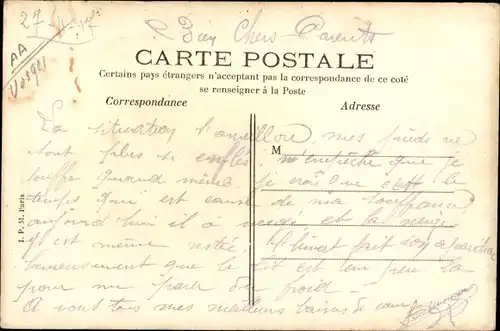 27-11-17
Bien Chers Parents
AA
Vosges
CARTE POSTALE
Certains pays étrangers n'acceptant pas la correspondance de ce coté
se renseigner à la Poste
Correspondance Adresse
La situation s'améliore, mes pieds ne
sont plus si enflés, n'empêche que je
M
souffre quand même, je crois que c'est le
temps qui est cause de ma souffrance
aujourd'hui il a neigé et la neige
est même restée. L'hiver fait son apparition
heureusement que le lit est un peu là
pour me parler du froid
A vous tous mes meilleurs baisers de cœur
I. P. M. Paris